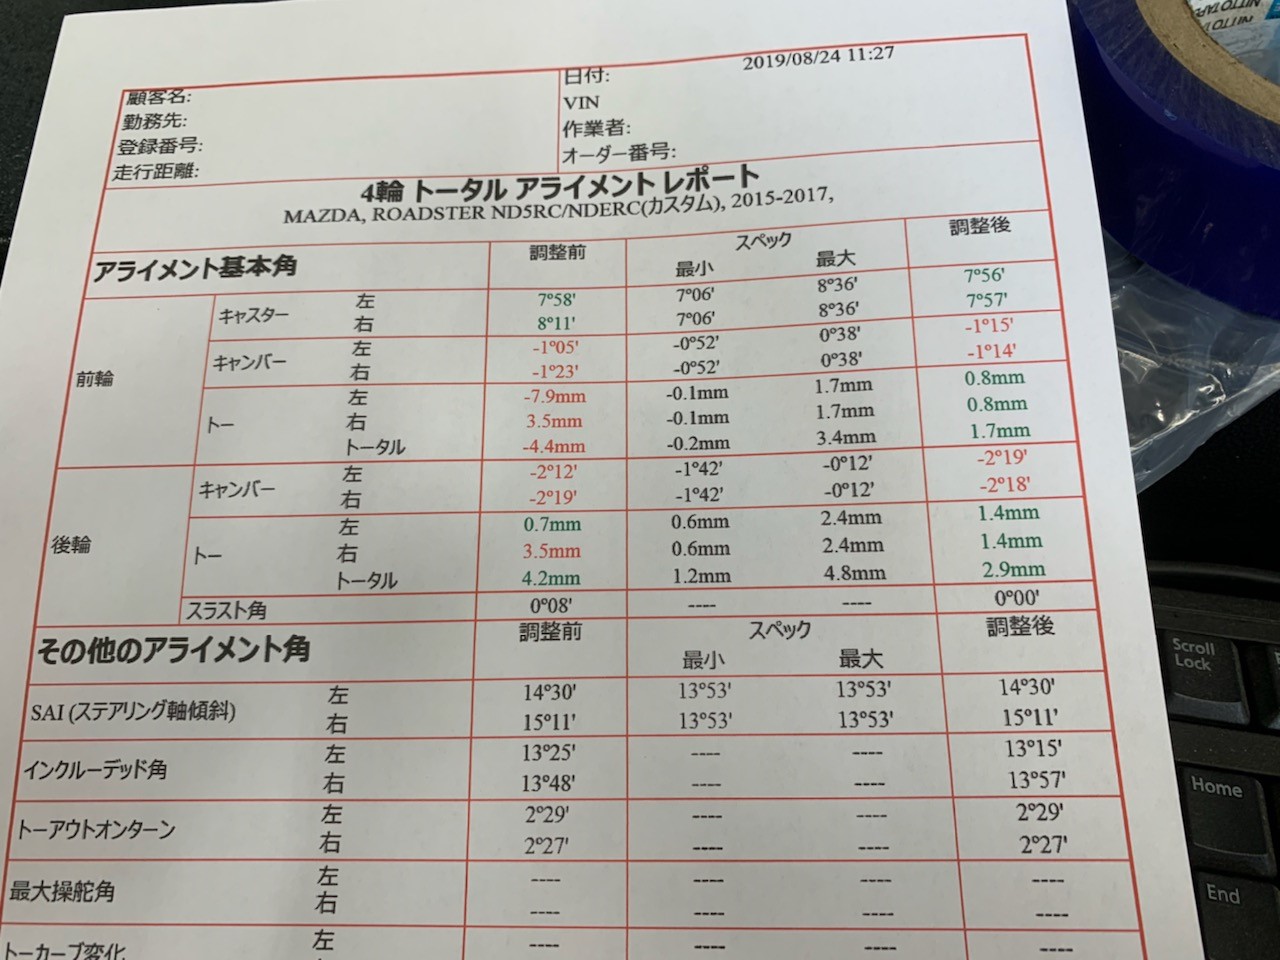 顧客名:
勤務先:
登録番号:
走行距離:
日付: 2019/08/24 11:27
VIN
作業者:
オーダー番号:
4輪 トータル アライメント レポート
MAZDA, ROADSTER ND5RC/NDERC(カスタム), 2015-2017,
アライメント基本角 調整前 スペック 調整後
最小 最大
前輪
キャスター 左 7°58' 7°06' 8°36' 7°56'
右 8°11' 7°06' 8°36' 7°57'
キャンバー 左 -1°05' -0°52' 0°38' -1°15'
右 -1°23' -0°52' 0°38' -1°14'
トー 左 -7.9mm -0.1mm 1.7mm 0.8mm
右 3.5mm -0.1mm 1.7mm 0.8mm
トータル -4.4mm -0.2mm 3.4mm 1.7mm
後輪
キャンバー 左 -2°12' -1°42' -0°12' -2°19'
右 -2°19' -1°42' -0°12' -2°18'
トー 左 0.7mm 0.6mm 2.4mm 1.4mm
右 3.5mm 0.6mm 2.4mm 1.4mm
トータル 4.2mm 1.2mm 4.8mm 2.9mm
スラスト角 0°08' ---- ---- 0°00'
その他のアライメント角 調整前 スペック 調整後
最小 最大
SAI (ステアリング軸傾斜) 左 14°30' 13°53' 13°53' 14°30'
右 15°11' 13°53' 13°53' 15°11'
インクルーデッド角 左 13°25' ---- ---- 13°15'
右 13°48' ---- ---- 13°57'
トーアウトオンターン 左 2°29' ---- ---- 2°29'
右 2°27' ---- ---- 2°27'
最大操舵角 左 ---- ---- ---- ----
右 ---- ---- ---- ----
トーカーブ変化 左 ---- ---- ---- ----
Scroll
Lock
Home
End
NITTO TAPE